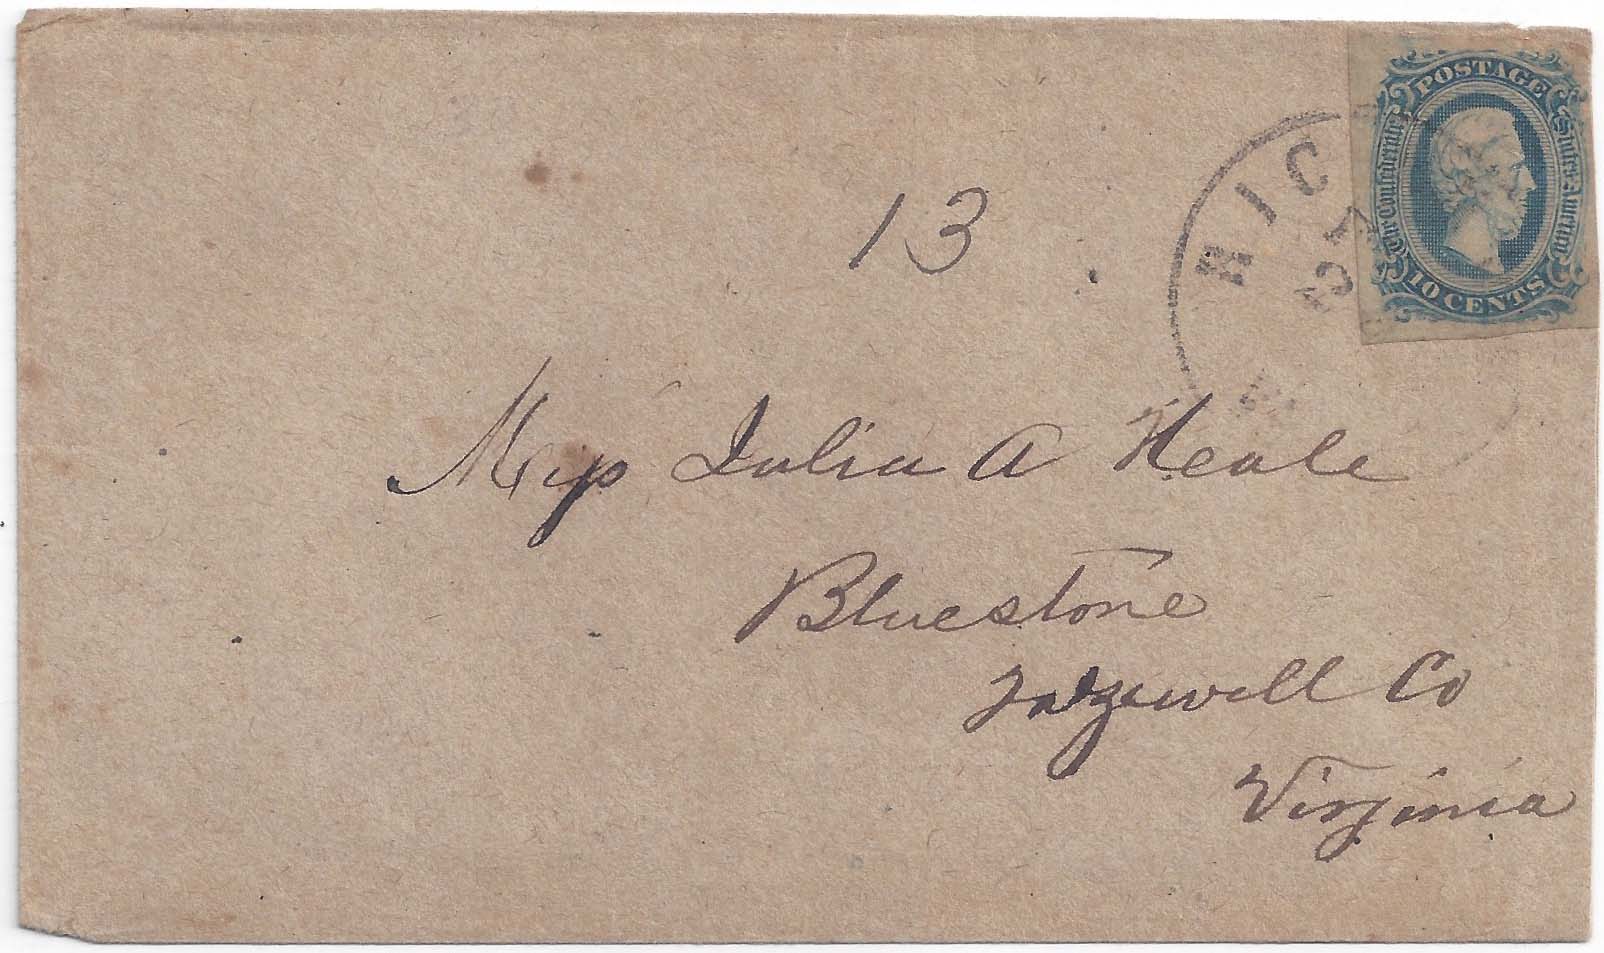 POSTAGE
The Confederate States of America
10 CENTS
RIC
13
Miss Julia A Neale
Bluestone
Tazewell Co
Virginia